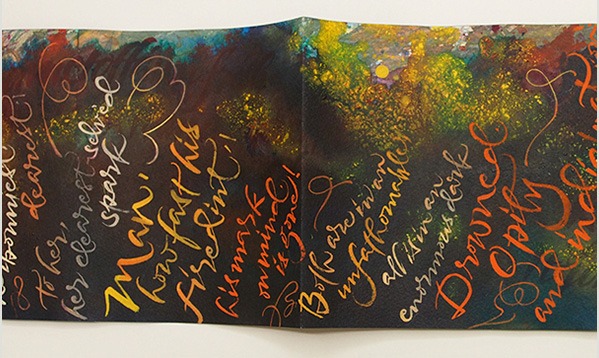 bonniest
dearest
to her,
her clearest selvèd
spark
Man,
how fast his
firedint,
his mark
on mind
is gone!
Both are in an
unfathomable
all is in an
enormous dark
Drowned
O pity
and